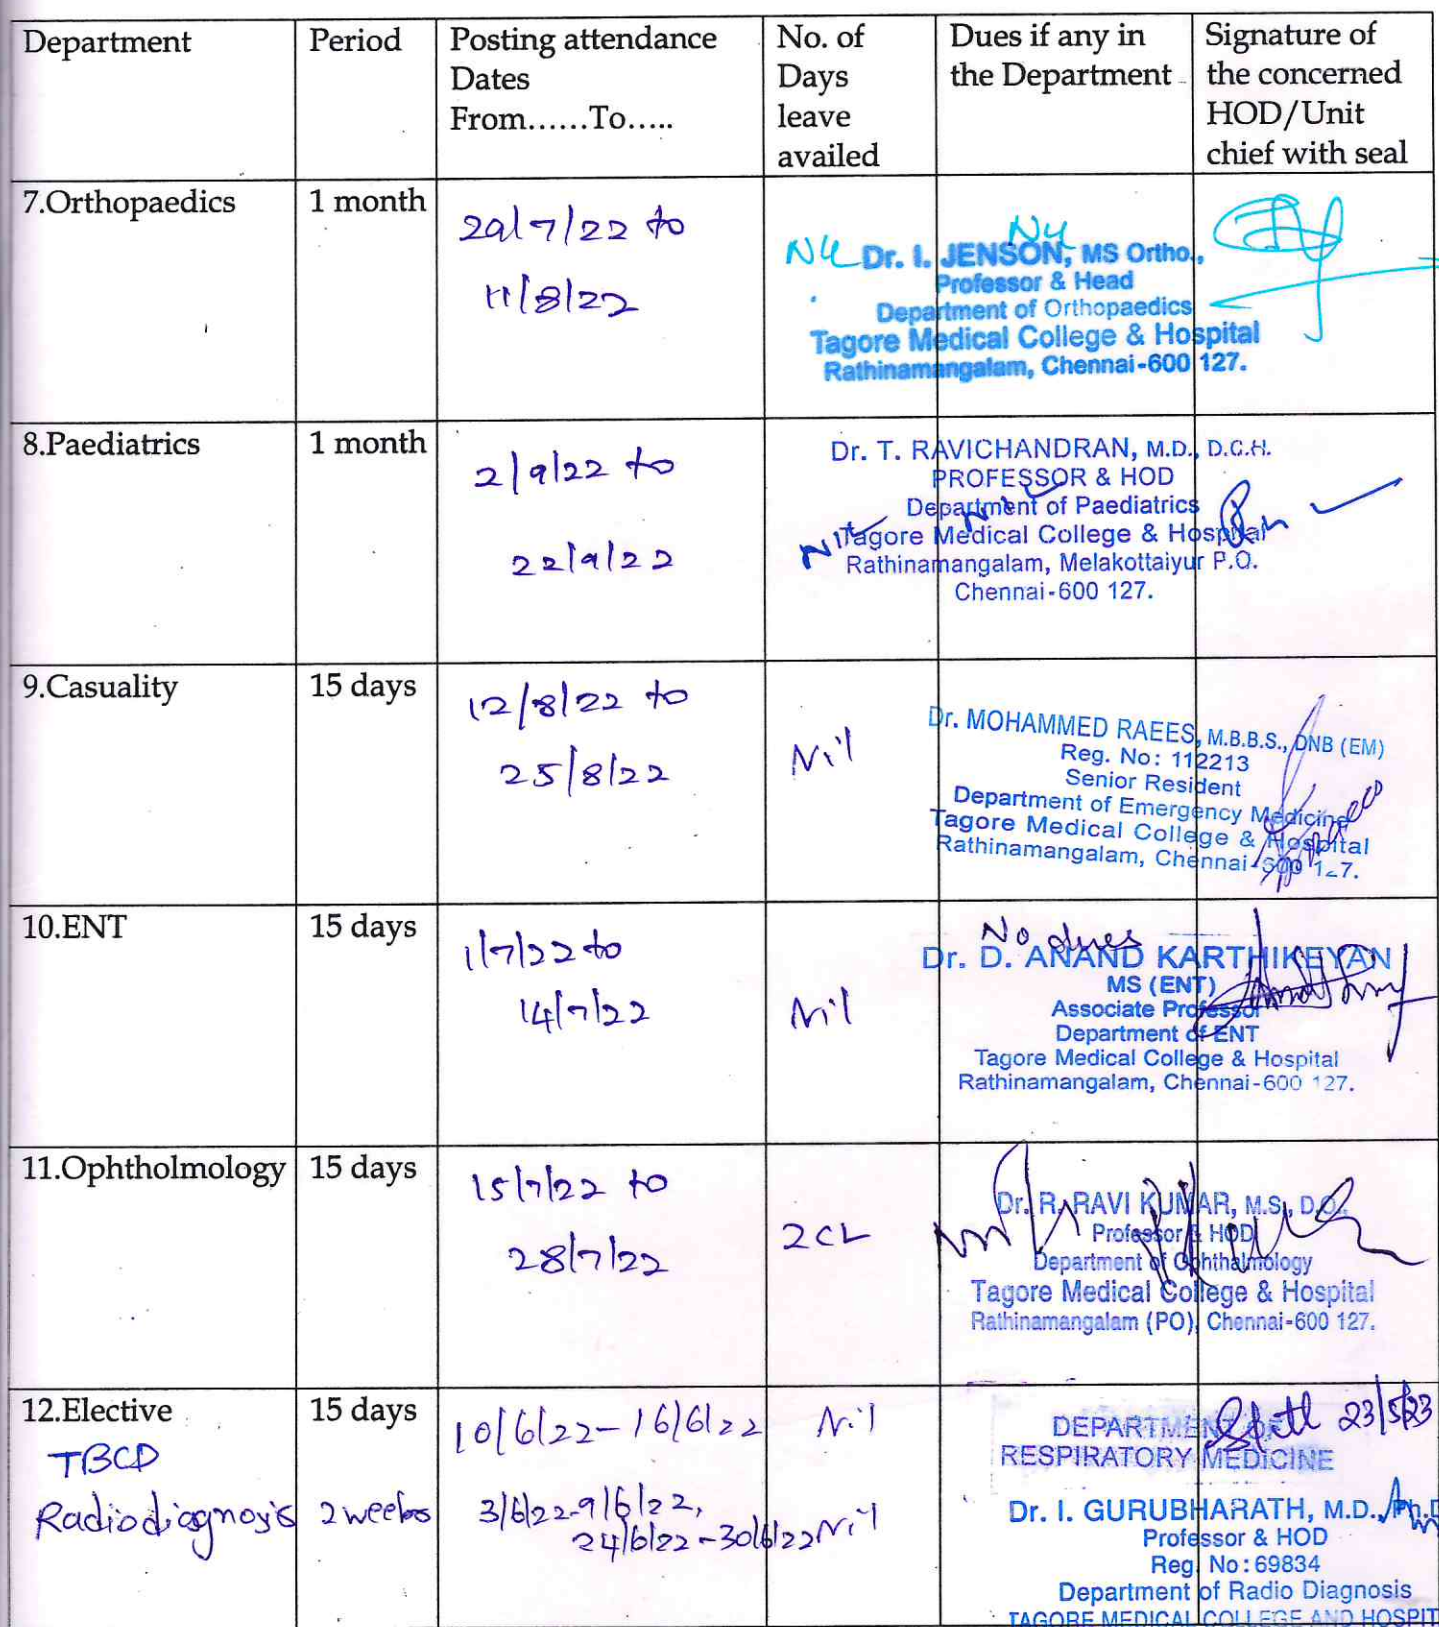 Department Period Posting attendance Dates From......To..... No. of Days leave availed Dues if any in the Department Signature of the concerned HOD/Unit chief with seal
7.Orthopaedics 1 month 29/7/22 to
11/8/22
Nil Nil
Dr. I. JENSON, MS Ortho.,
Professor & Head
Department of Orthopaedics
Tagore Medical College & Hospital
Rathinamangalam, Chennai-600 127.
8.Paediatrics 1 month 2/9/22 to
22/9/22
Nil Nil
Dr. T. RAVICHANDRAN, M.D., D.C.H.
PROFESSOR & HOD
Department of Paediatrics
Tagore Medical College & Hospital
Rathinamangalam, Melakottaiyur P.O.
Chennai-600 127.
9.Casuality 15 days 12/8/22 to
25/8/22
Nil
Dr. MOHAMMED RAEES, M.B.B.S., DNB (EM)
Reg. No: 112213
Senior Resident
Department of Emergency Medicine
Tagore Medical College & Hospital
Rathinamangalam, Chennai-600 127.
10.ENT 15 days 1/7/22 to
14/7/22
Nil
No dues
Dr. D. ANAND KARTHIKEYAN
MS (ENT)
Associate Professor
Department of ENT
Tagore Medical College & Hospital
Rathinamangalam, Chennai-600 127.
11.Ophtholmology 15 days 15/7/22 to
28/7/22
2 CL
Dr. R. RAVI KUMAR, M.S., D.O.,
Professor & HOD
Department of Ophthalmology
Tagore Medical College & Hospital
Rathinamangalam (PO), Chennai-600 127.
12.Elective 15 days 10/6/22-16/6/22 Nil
TBCD
DEPARTMENT OF
RESPIRATORY MEDICINE
23/5/23
Radiodiagnosis 2 weeks 3/6/22-9/6/22,
24/6/22-30/6/22 Nil
Dr. I. GURUBHARATH, M.D.,
Professor & HOD
Reg. No: 69834
Department of Radio Diagnosis
TAGORE MEDICAL COLLEGE AND HOSPIT